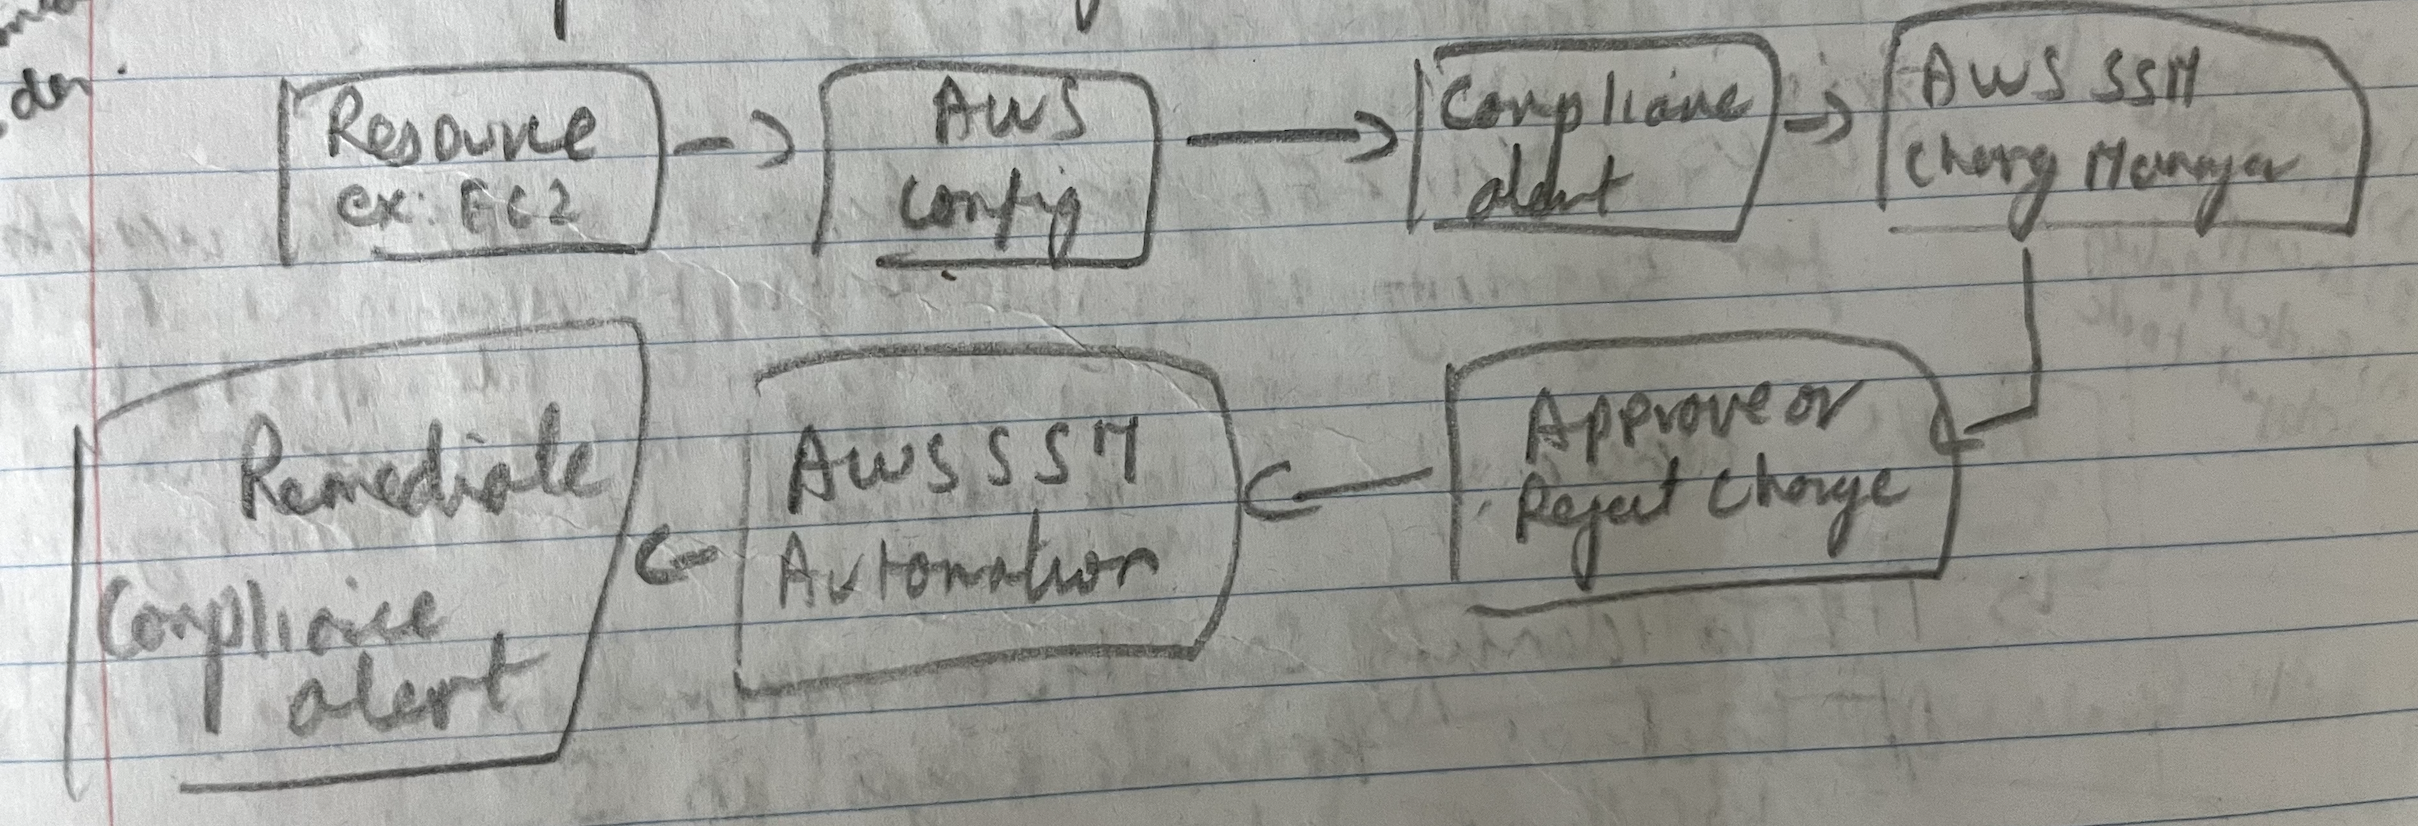 der.
Resource
ex: EC2
AWS
config
Compliance
alert
AWS SSM
Change Manager
Approve or
Reject Change
AWS SSM
Automation
Remediate
Compliance
alert